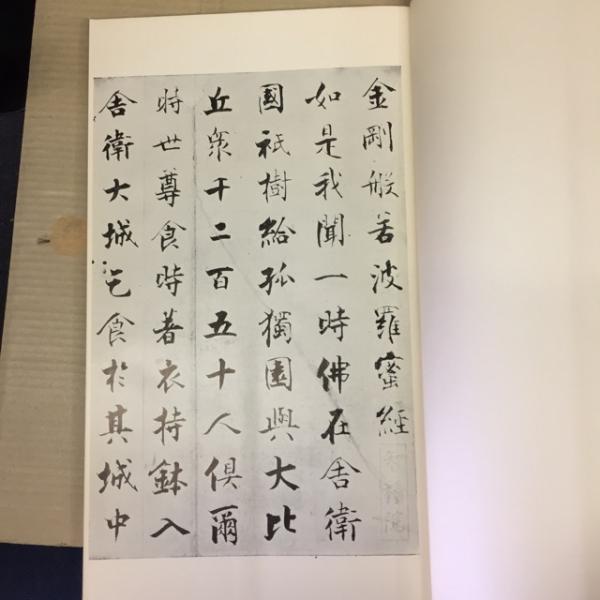 金剛般若波羅蜜經
如是我聞一時佛在舍衛
國祇樹給孤獨園與大比
丘衆千二百五十人俱爾
時世尊食時著衣持鉢入
舍衛大城乞食於其城中